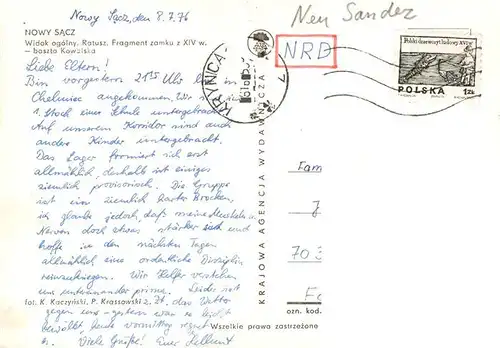 Nowy Sącz, den 8.7.76
Neu Sandez
NOWY SĄCZ
Widok ogólny. Ratusz. Fragment zamku z XIV w.
– baszta Kowalska
NRD
KRYNICA
POLSKA
Liebe Eltern!
Bin vorgestern 21³⁵ Uhr in
Chelmiec angekommen. Wir
1. Stock einer Schule untergebracht.
Auf unserem Korridor sind auch
andere Kinder untergebracht.
Das Lager formiert sich erst
allmählich, deshalb ist einiges
ziemlich provisorisch. Die Gruppe
ist ein ziemlich harter Brocken,
ich glaube jedoch, daß meine Muskeln u.
Nerven doch etwas stärker sind und
hoffe in den nächsten Tagen
allmählich eine ordentliche Disziplin
reinzukriegen. Wir Helfer verstehen
uns untereinander prima. Leider ist
z. Zt. das Wetter
gegen uns – gestern war es leicht
bewölkt, heute vormittag regnet
es. Viele Grüße! Euer Hellmut
fot. K. Kaczyński, P. Krassowski
KRAJOWA AGENCJA WYDAWNICZA
Wszelkie prawa zastrzeżone
Fam
J
70
ozn. kod.